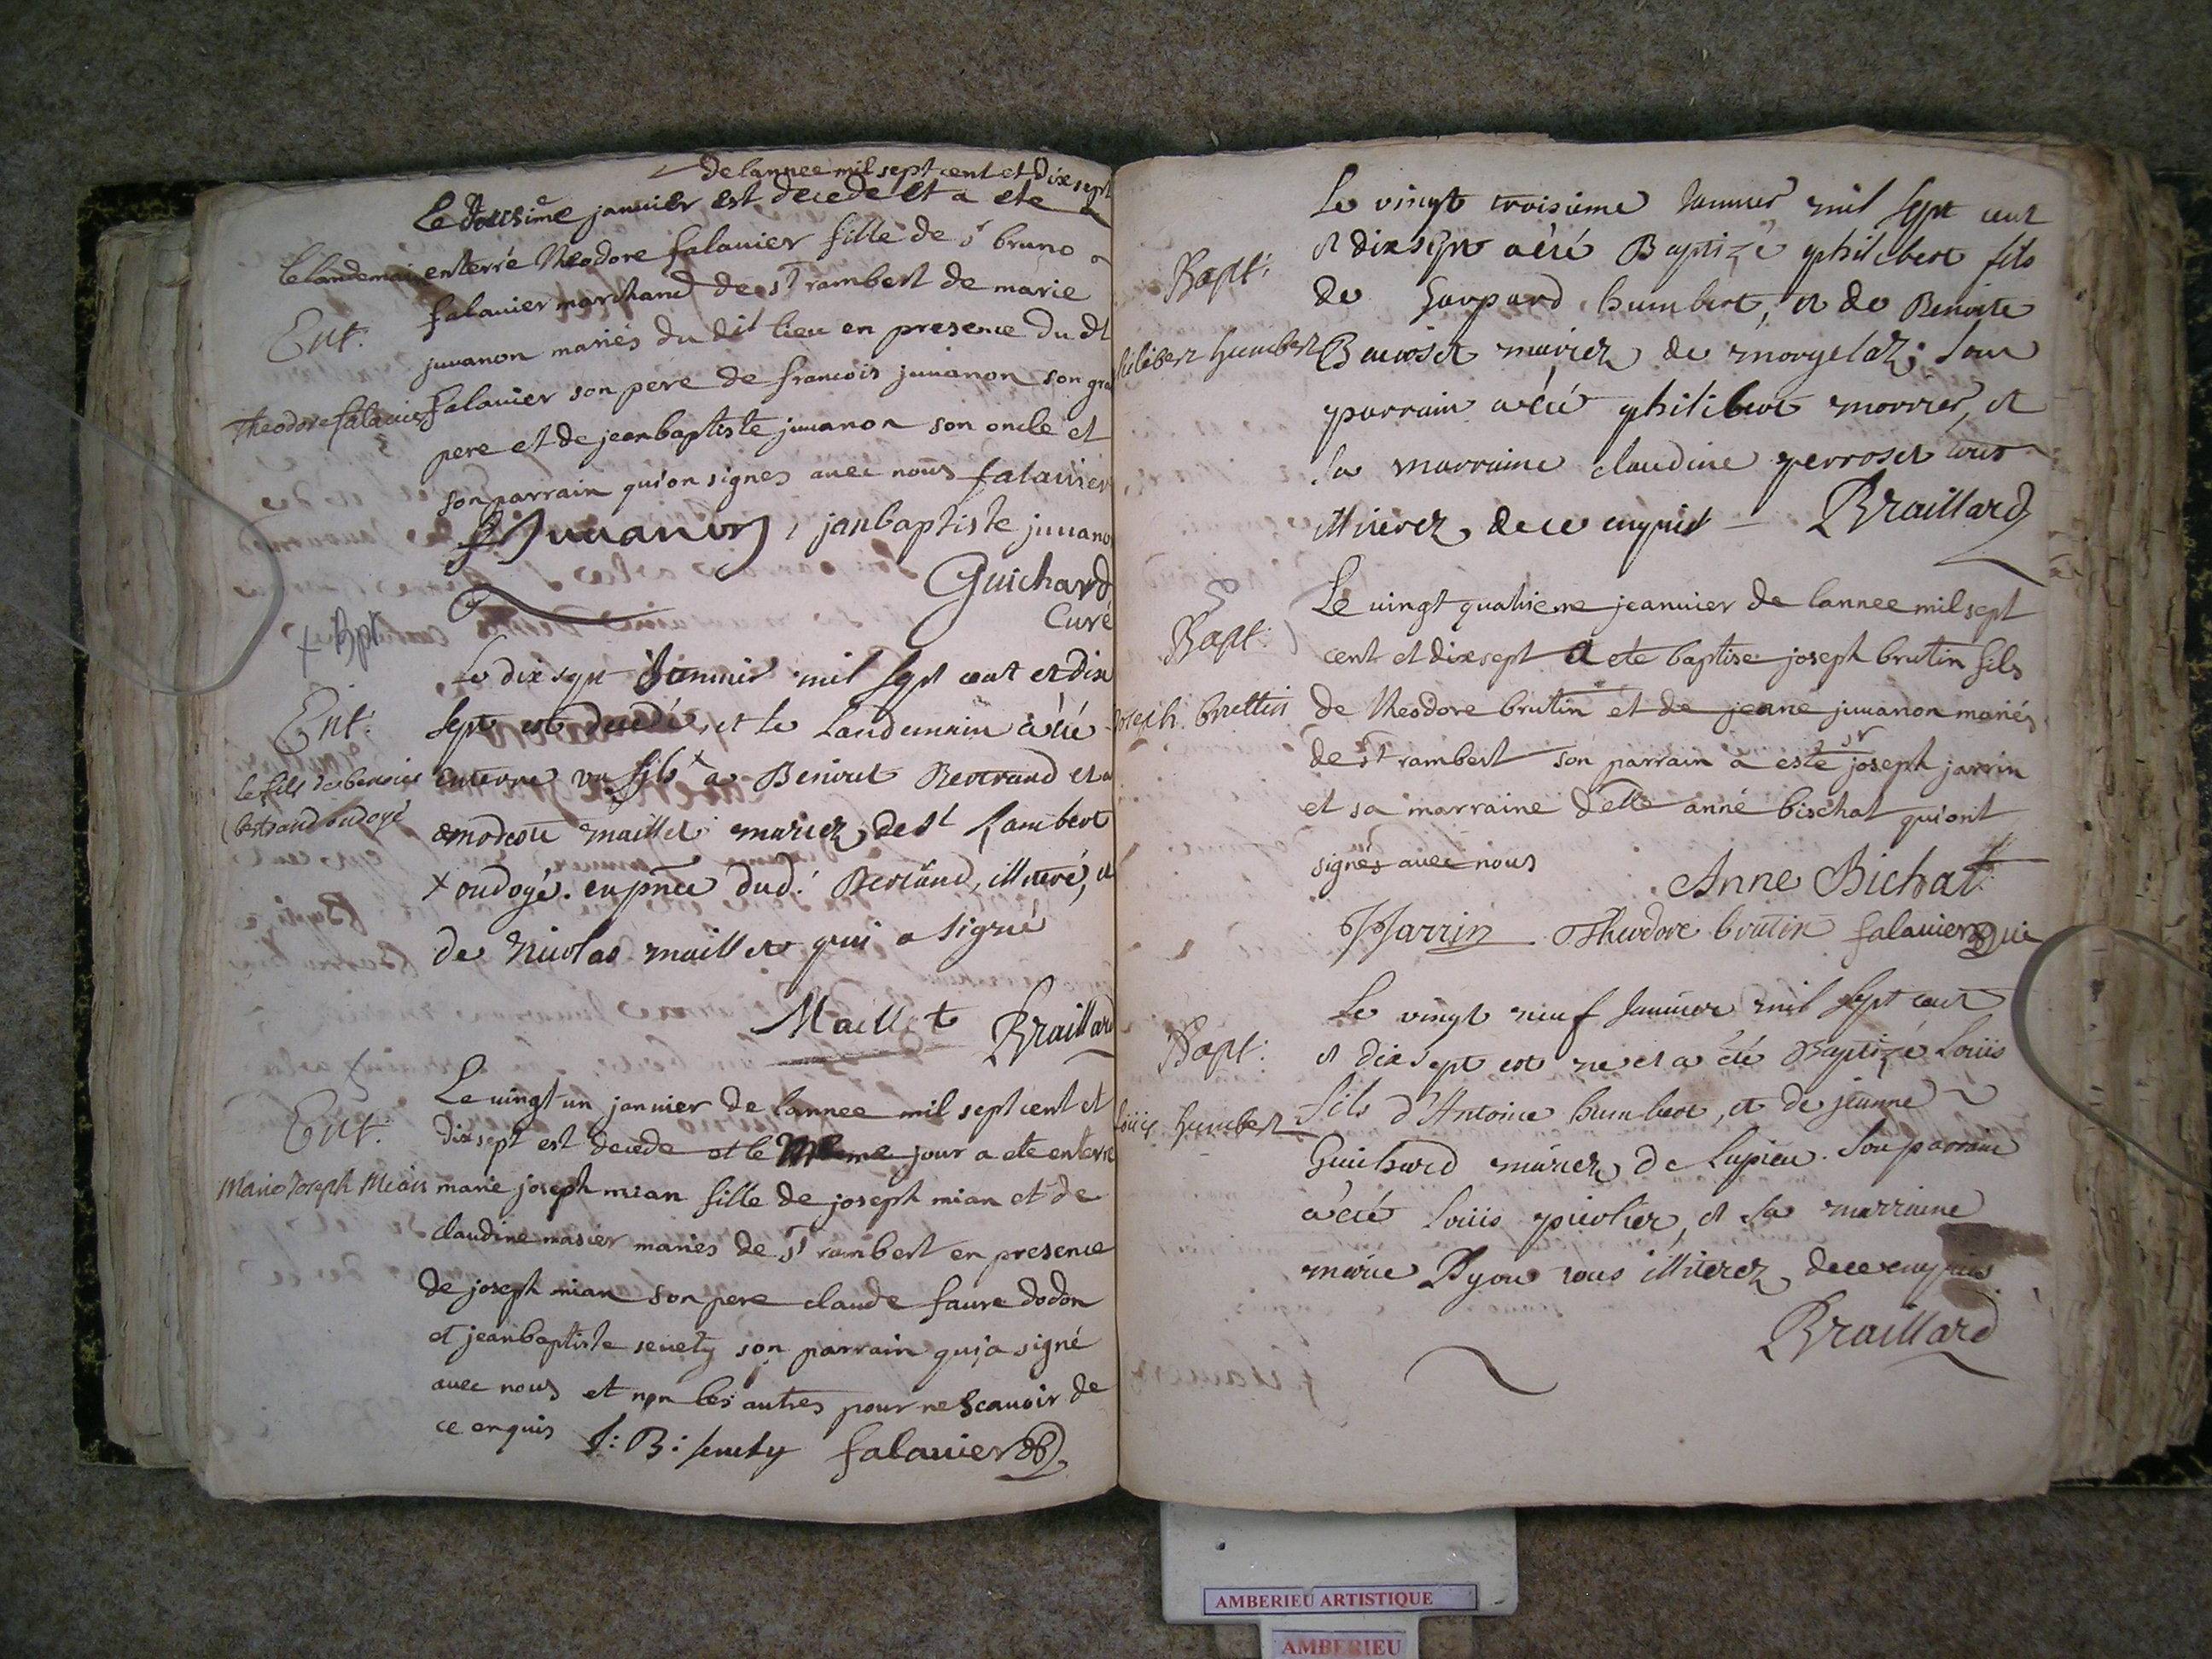 de lannee mil sept cent et dix sept
Le dousime januier est decede et a ete
le landemain enterré theodore falauier fille de sr bruno
Ent.
falauier marchand de st rambert de marie
juuanon mariés du dit lieu en presence du dt
Theodore falauier
falauier son pere de francois juuanon son gra
pere et de jeanbaptiste juuanon son oncle et
son parrain qui on signes auec nous falauier
Juuanon, janbaptiste juuano
Guichard
Curé
+ Bpt
Le dix sept Januier mil sept cent et dix
Ent.
sept est decedé, et le Landemain a été
le fils de benoict
enterre un fils + a Benoict Bertrand et a
bertrand ondoyé
modeste maillet mariez de st Rambert
+ ondoyé. en pnce dud. Bertrand, illiteré, et
de Nicolas maillet qui a signé
Maillet Braillard
Le uingt un januier de lannee mil sept cent et
Ent.
dixsept est decede et le meme jour a ete enterre
Marie Joseph Mian
marie joseph mian fille de joseph mian et de
claudine masier maries de st rambert en presence
de joseph mian son pere claude faure dodon
et jeanbaptiste seuety son parrain qui a signé
auec nous et non les autres pour ne scauoir de
ce enquis J: B: seuety falauier
Le vingt troisieme Januier mil sept cent
Bapt:
et dixsept a été Baptizé philibert fils
de Gaspard humbert, et de Benoite
filibert humbert
mariez de morgelaz; son
parrain a été philibert morrier, et
la marraine claudine perroset tous
illiterez, de ce enquis Braillard
Le uingt quatrieme jeanuier de lannee mil sept
Bapt:
cent et dixsept a ete baptise joseph brutin fils
Joseph bruttin
de theodore brutin et de jeanne juuanon mariés
de st rambert son parrain a este sr joseph jarrin
et sa marraine delle anne bischat qui ont
signés auec nous
Anne Bichat
JJarrin Theodore brutin falauier vic
Le vingt neuf Januier mil sept cent
Bapt:
et dixsept est ne et a été Baptizé Louis
Louis humbert
fils d'Antoine humbert, et de jeanne
Guichard mariez de Lupieu. Son parrain
a été Louis piolier, et sa marraine
marie Dyon tous illiterez, de ce enquis
Braillard
AMBERIEU ARTISTIQUE
AMBERIEU